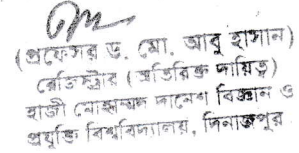 (প্রফেসর ড. মো. আবু হাসান)
রেজিস্ট্রার (অতিরিক্ত দায়িত্ব)
হাজী মোহাম্মদ দানেশ বিজ্ঞান ও
প্রযুক্তি বিশ্ববিদ্যালয়, দিনাজপুর